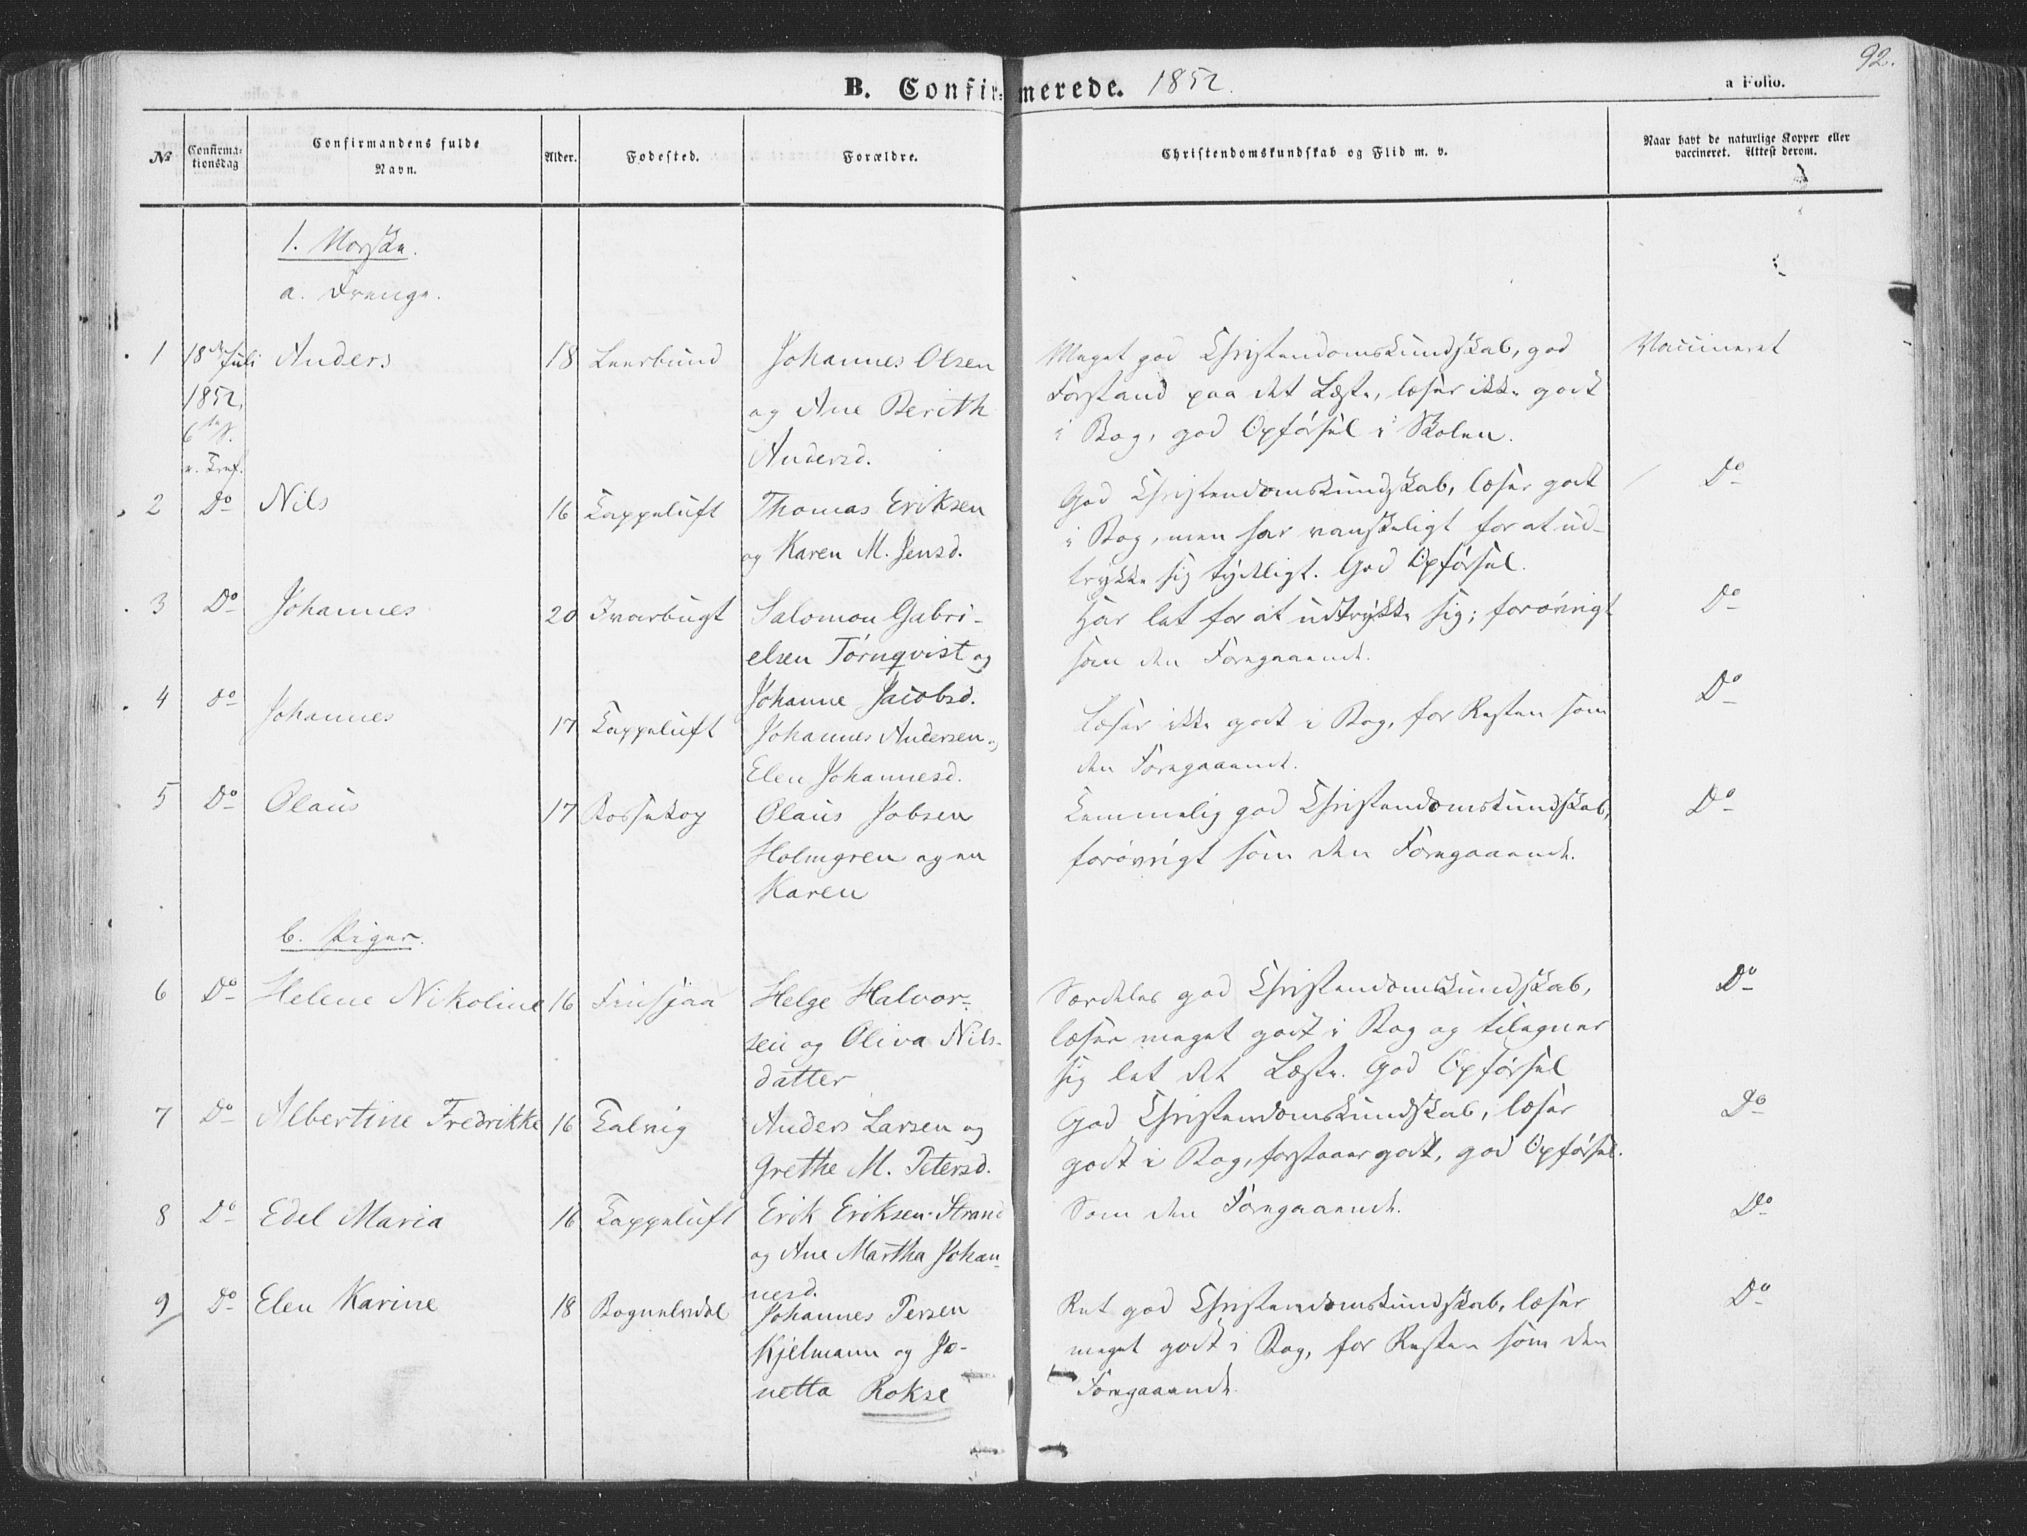 92.
B. Confirmerede. 1852.
a Folio.
№
Confirma-
tionsdag
Confirmandens fulde
Navn.
Alder.
Fødested.
Forældre.
Christendomskundskab og Flid m. v.
Naar havt de naturlige Kopper eller
vaccineret. Attest derom.
1. Norske.
a. Drenge.
1 18de Juli Anders 18 Leerbund Johannes Olsen Meget god Christendomskundskab, god Vaccineret
1852, og Ane Berith Forstand paa det Læste, læser ikke godt
6te S. Andersd. i Bog, god Opførsel i Skolen.
e. Tref.
2 Do Nils 16 Kappeluft Thomas Eriksen God Christendomskundskab, læser godt Do
og Karen M. Jensd. i Bog, men har vanskeligt for at ud-
trykke sig tydeligt. God Opførsel.
3 Do Johannes 20 Ivarbugt Salomon Gabri- Har let for at udtrykke sig; forøvrigt Do
elsen Törnqvist og som den Foregaaende.
Johanne Jacobsd.
4 Do Johannes 17 Kappeluft Johannes Andersen og Læser ikke godt i Bog, for Resten som Do
Elen Johannesd. den Foregaaende.
5 Do Olaus 17 Bossekop Olaus Jobsen Temmelig god Christendomskundskab, Do
Holmgren og en forøvrigt som den Foregaaende.
Karen
b. Piger.
6 Do Helene Nikoline 16 Helge Halvor- Særdeles god Christendomskundskab, Do
sen og Oliva Nils- læser meget godt i Bog og tilegner
datter sig let det Læste. God Opførsel
7 Do Albertine Fredrikke 16 Talvig Anders Larsen og God Christendomskundskab, læser Do
Grethe M. Petersd. godt i Bog, forstaaer godt, god Opførsel.
8 Do Edel Maria 16 Kappeluft Erik Eriksen Strand Som den Foregaaende. Do
og Ane Martha Johan-
nesd.
9 Do Elen Karine 18 Bognelvdal Johannes Persen Ret god Christendomskundskab, læser Do
Kjelmann og Jo- meget godt i Bog, for Resten som den
netta Rokse Foregaaende.